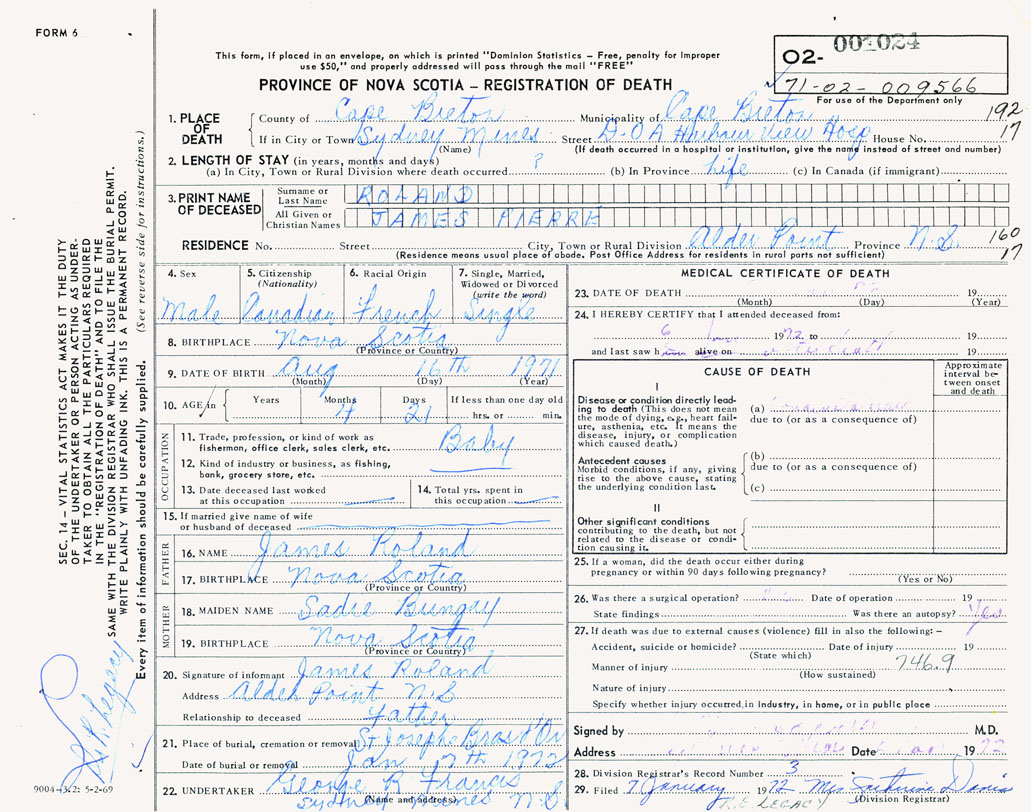 FORM 6
001024
O2-
71-02-009566
For use of the Department only
This form, if placed in an envelope, on which is printed "Dominion Statistics — Free, penalty for improper
use $50," and properly addressed will pass through the mail "FREE"
PROVINCE OF NOVA SCOTIA — REGISTRATION OF DEATH
1. PLACE OF DEATH
County of Cape Breton Municipality of Cape Breton 192
If in City or Town Sydney Mines Street D.O A Harbour View Hosp House No. 17
(Name) (If death occurred in a hospital or institution, give the name instead of street and number)
2. LENGTH OF STAY (in years, months and days)
(a) In City, Town or Rural Division where death occurred ? (b) In Province Life (c) In Canada (if immigrant)
3. PRINT NAME OF DECEASED
Surname or Last Name ROLAND
All Given or Christian Names JAMES PIERRE
RESIDENCE No. Street City, Town or Rural Division Alder Point Province N.S. 160
(Residence means usual place of abode. Post Office Address for residents in rural parts not sufficient) 17
4. Sex
Male
5. Citizenship
(Nationality)
Canadian
6. Racial Origin
French
7. Single, Married,
Widowed or Divorced
(write the word)
Single
8. BIRTHPLACE Nova Scotia
(Province or Country)
9. DATE OF BIRTH Aug 16TH 1971
(Month) (Day) (Year)
10. AGE in Years Months Days If less than one day old
4 21 hrs. or min.
OCCUPATION
11. Trade, profession, or kind of work as
fisherman, office clerk, sales clerk, etc. Baby
12. Kind of industry or business, as fishing,
bank, grocery store, etc.
13. Date deceased last worked
at this occupation
14. Total yrs. spent in
this occupation
15. If married give name of wife
or husband of deceased
FATHER
16. NAME James Roland
17. BIRTHPLACE Nova Scotia
(Province or Country)
MOTHER
18. MAIDEN NAME Sadie Bungay
19. BIRTHPLACE Nova Scotia
(Province or Country)
20. Signature of informant James Roland
Address Alder Point N.S
Relationship to deceased Father
21. Place of burial, cremation or removal St Josephs Bras D'Or
Date of burial or removal Jan 7th 1972
22. UNDERTAKER George R Francis
(Name and address) Sydney Mines N.S
MEDICAL CERTIFICATE OF DEATH
23. DATE OF DEATH 19
(Month) (Day) (Year)
24. I HEREBY CERTIFY that I attended deceased from:
6 1972 to 19
and last saw h alive on 19
CAUSE OF DEATH
Approximate
interval be-
tween onset
and death
I
Disease or condition directly lead-
ing to death (This does not mean
the mode of dying, e.g., heart fail-
ure, asthenia, etc. It means the
disease, injury, or complication
which caused death.)
(a)
due to (or as a consequence of)
Antecedent causes
Morbid conditions, if any, giving
rise to the above cause, stating
the underlying condition last.
(b)
due to (or as a consequence of)
(c)
II
Other significant conditions
contributing to the death, but not
related to the disease or condi-
tion causing it.
25. If a woman, did the death occur either during
pregnancy or within 90 days following pregnancy?
(Yes or No)
26. Was there a surgical operation? Date of operation 19
State findings Was there an autopsy? Yes
27. If death was due to external causes (violence) fill in also the following: —
Accident, suicide or homicide? Date of injury 19
(State which)
Manner of injury 746.9
(How sustained)
Nature of injury
Specify whether injury occurred in industry, in home, or in public place
Signed by M.D.
Address Date 1972
28. Division Registrar's Record Number 3
29. Filed 7 January 1972 Mrs Catherine Davis
(Division Registrar)
R.E. LEGACY
SEC. 14 — VITAL STATISTICS ACT MAKES IT THE DUTY
OF THE UNDERTAKER OR PERSON ACTING AS UNDER-
TAKER TO OBTAIN ALL THE PARTICULARS REQUIRED
IN THE "REGISTRATION OF DEATH" AND TO FILE THE
SAME WITH THE DIVISION REGISTRAR WHO SHALL ISSUE THE BURIAL PERMIT.
WRITE PLAINLY WITH UNFADING INK. THIS IS A PERMANENT RECORD.
Every item of information should be carefully supplied. (See reverse side for instructions.)
Legacy
9004-3.2: 5-2-69